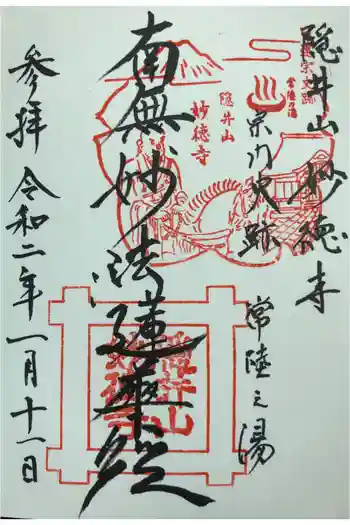 隠井山 妙徳寺
宗門史跡
常陸之湯
南無妙法蓮華経
参拝 令和二年一月十一日
宗門史跡
常陸の湯
隠井山
妙徳寺